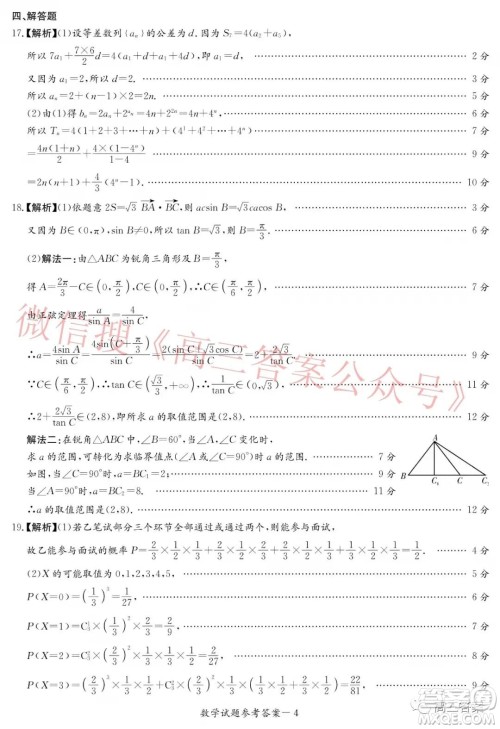 四、解答题
17.【解析】(1)设等差数列{aₙ}的公差为 d. 因为 S₇=4(a₂+a₅),
所以 7a₁+(7×6)/2 d=4(a₁+d+a₁+4d). 2 分
又因为 a₁=2,所以 d=2. 4 分
所以 aₙ=2+(n-1)×2=2n. 5 分
(2)由(1)得 bₙ=2aₙ+2^{aₙ}=4n+2^{2n}=4n+4ⁿ. 6 分
所以 Tₙ=4(1+2+3+…+n)+(4¹+4²+…+4ⁿ) 7 分
=4n(1+n)/2+4×(1-4ⁿ)/(1-4) 9 分
=2n(n+1)+4/3(4ⁿ-1). 10 分
18.【解析】(1)依题意 2S=√3 BA·BC,则 acsin B=√3cacos B. 3 分
又因为 B∈(0,π),sin B≠0,所以 tan B=√3,
(2)解法一:由△ABC 为锐角三角形及
得 A=2π/3-C∈(0,π/2),且 C∈(0,π/2),∴C∈(π/6,π/2). 7 分
由正弦定理得 a/sin A=4/sin C,
∴a=4sin A/sin C= =2(sin C+√3cos C)/sin C=2+2√3/tan C. 9 分
∵C∈(π/6,π/2),∴tan C∈(√3/3,+∞), 11 分
∴2+2√3/tan C∈(2,8),即所求 a 的取值范围是(2,8). 12 分
解法二:在锐角△ABC 中,∠B=60°,
求 a 的范围,可转化为求临界值点(∠A=90°或∠C=90°). 7 分
如图,当∠C=90°时,a=BC₁=2; 9 分
当∠A=90°时,a=BC₂=8. 11 分
∴a 的取值范围是(2,8). 12 分
B C₁ C C₂
19.【解析】(1)若乙笔试部分三个环节全部通过或通过两个,则能参与面试,
故乙能参与面试的概率 P=2/3×1/2×1/3+2/3×1/2×2/3+ =2/3. 4 分
(2)X 的可能取值为 0,1,2,3,4,5. 5 分
P(X=0)=(1/3)³=1/27, 6 分
P(X=1)=C₃¹×(1/3)²×2/3=2/9, 7 分
P(X=2)=C₃²×1/3×(2/3)²×(1/3)²= , 8 分
P(X=3)=C₃²×1/3×(2/3)²×C₂¹×1/3×2/3+(2/3)³×(1/3)²=22/81, 9 分
数学试题参考答案-4
微信搜《高三答案公众号》
高三答案